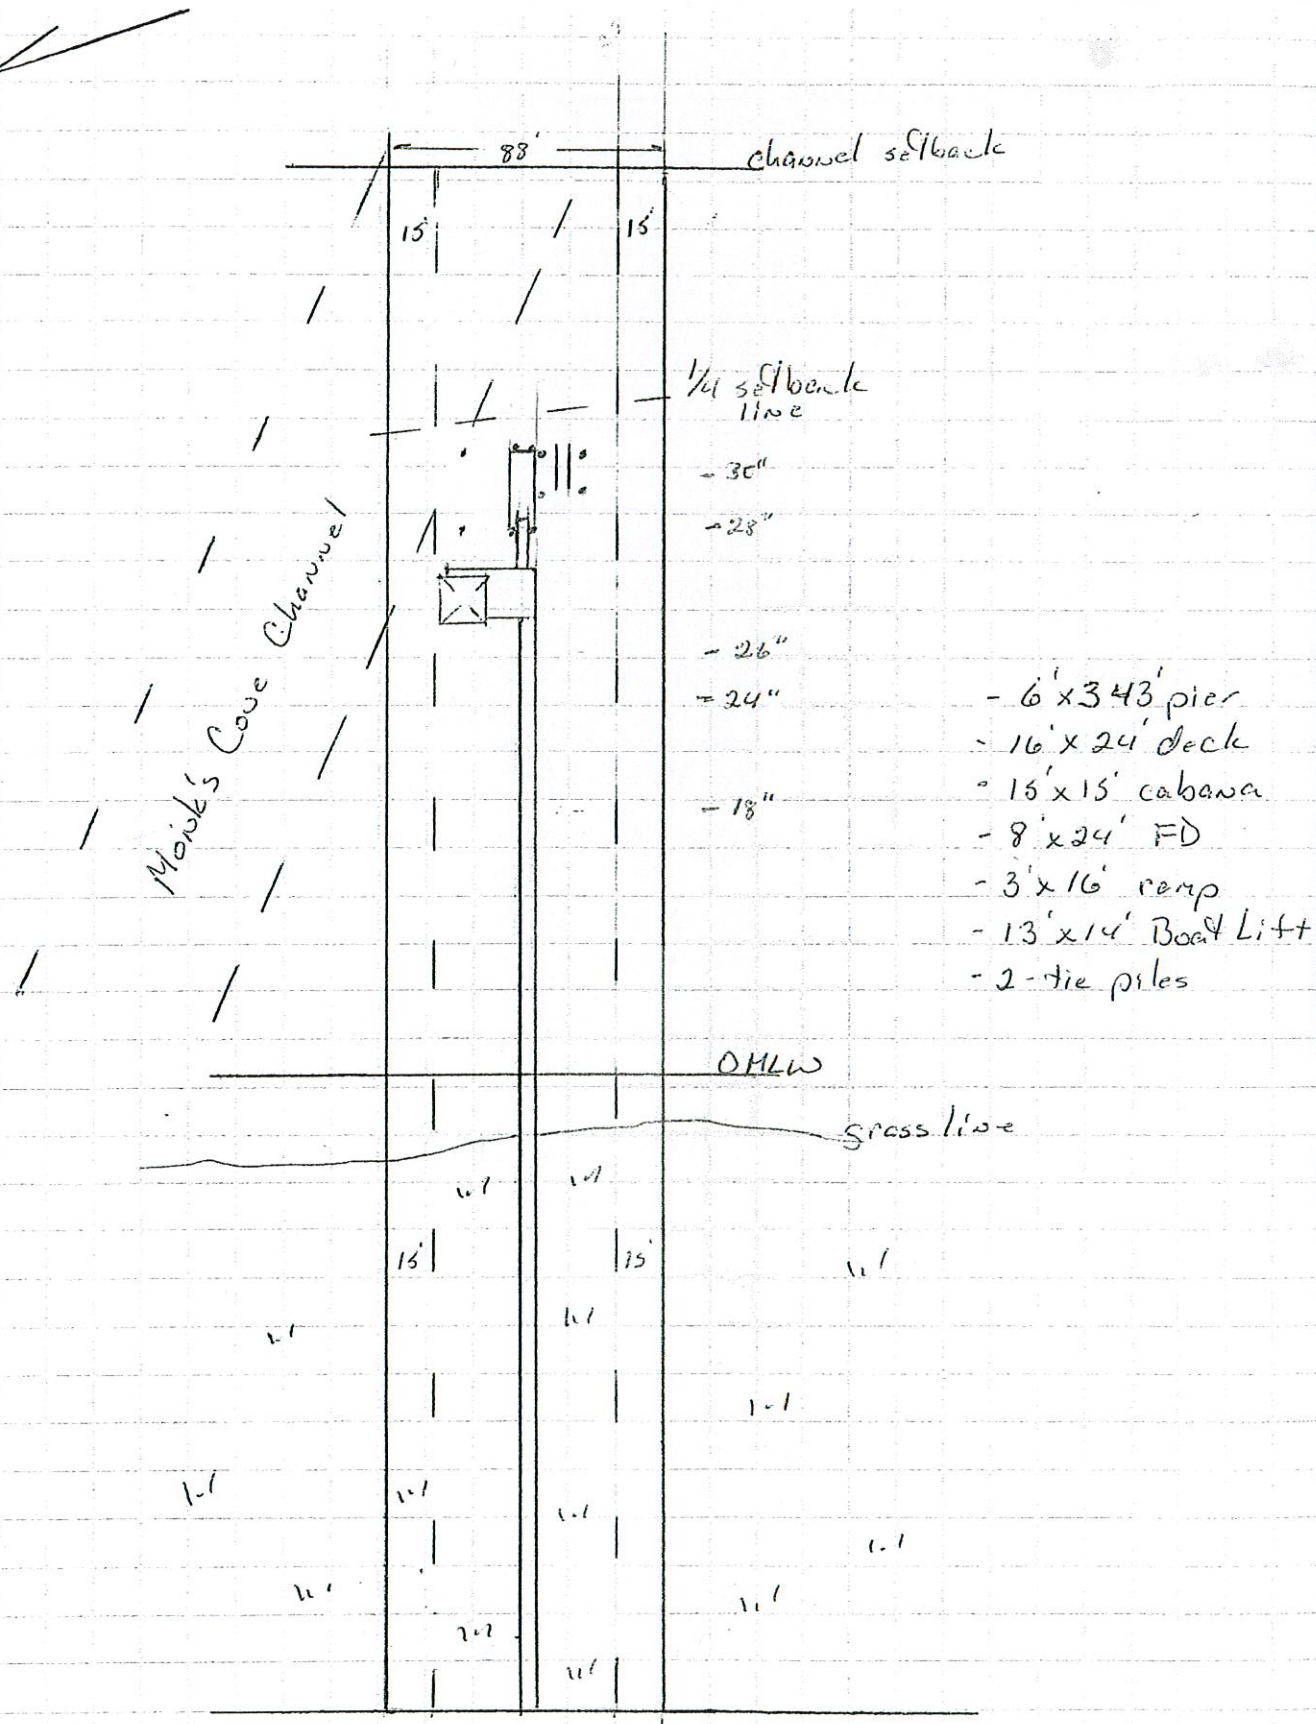 88'
channel setback
15'
15'
1/4 setback
line
- 30"
- 28"
Monk's Cove Channel
- 26"
- 24"
- 6'x343' pier
- 16'x24' deck
- 15'x15' cabana
- 18"
- 8'x24' FD
- 3'x16' ramp
- 13'x14' Boat Lift
- 2-tie piles
OMLW
grass line
15'
15'